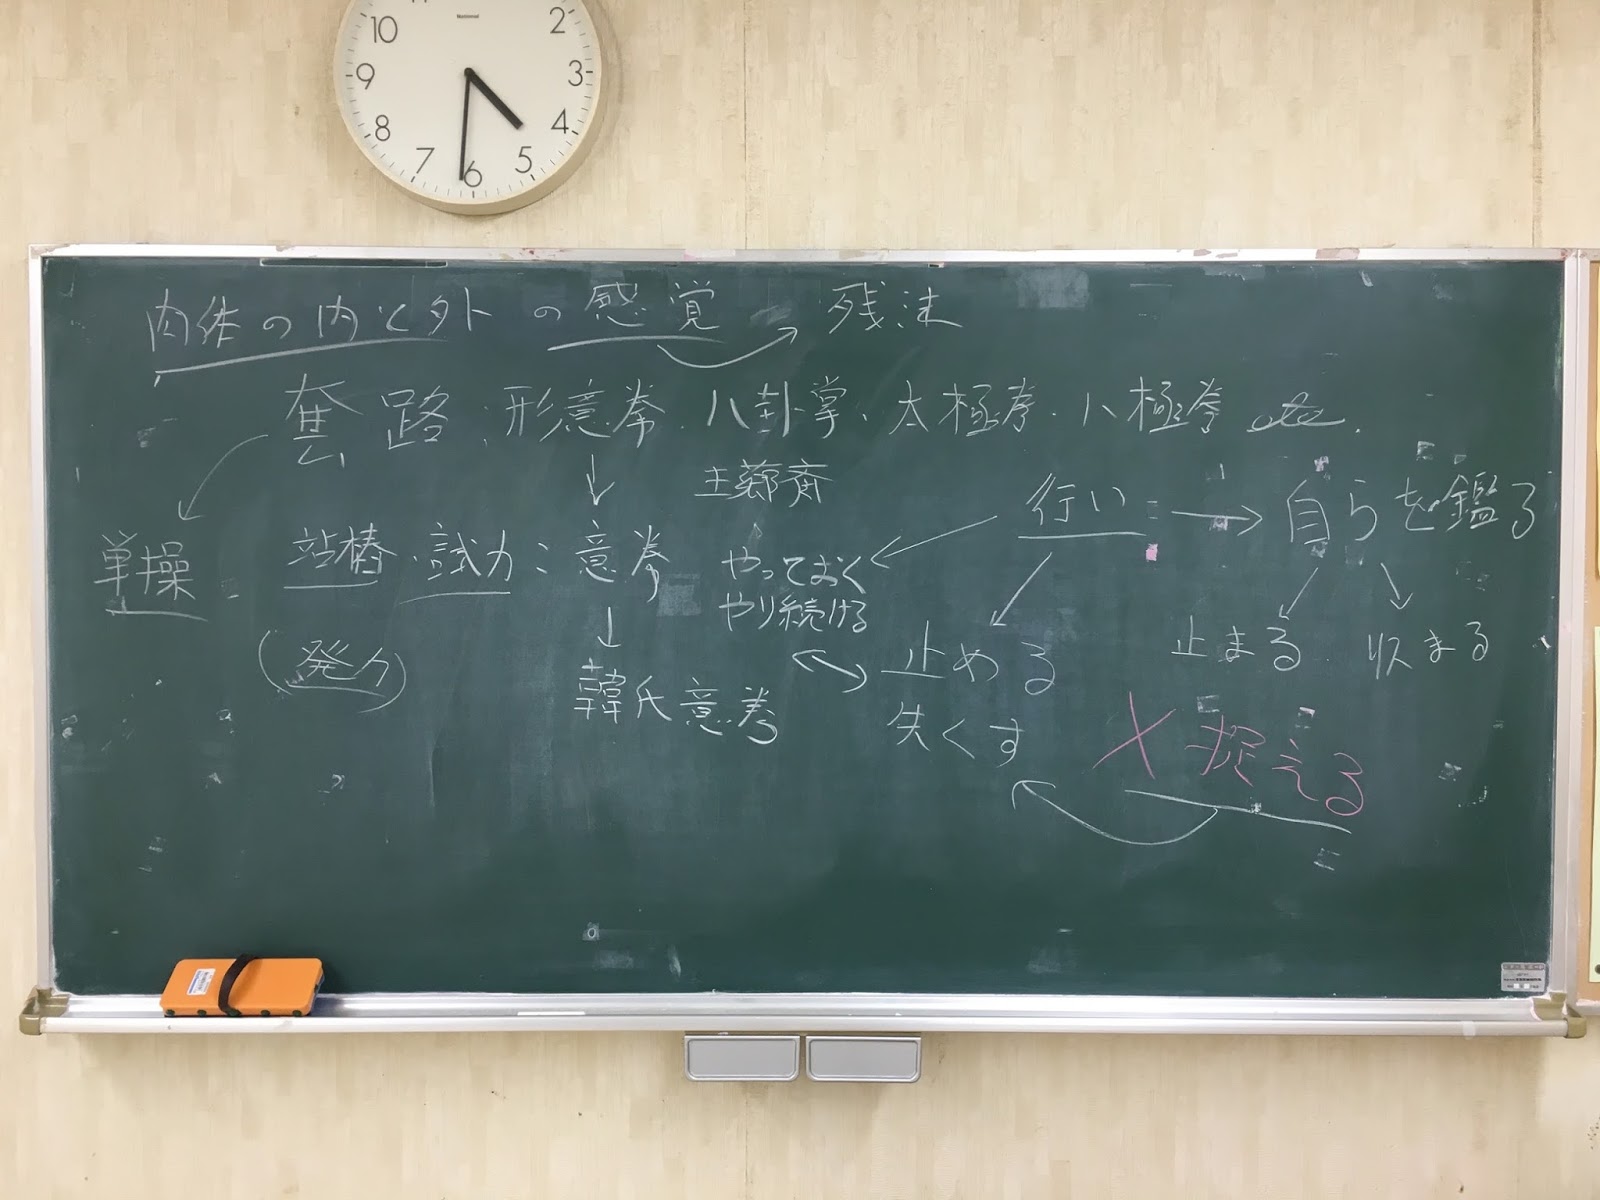 肉体の内と外の感覚 残法
套路、形意拳、八卦掌、太極拳、八極拳 etc.
王薌斎
行い → 自らを鑑る
単操 站樁・試力:意拳
やっておく
やり続ける
(発力)
韓氏意拳
止める
失くす
止まる 収まる
× 捉える
National
10 2
9 3
8 4
7 6 5